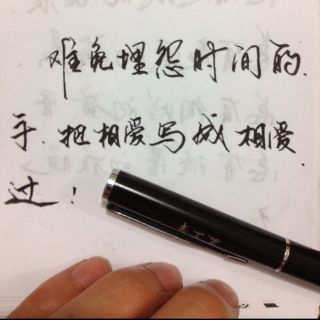 难免埋怨时间的
手.把相爱写成相爱
过!